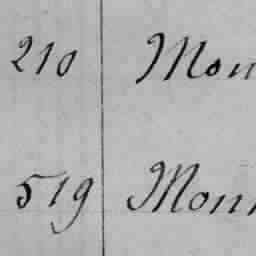 210 Mon
519 Mon